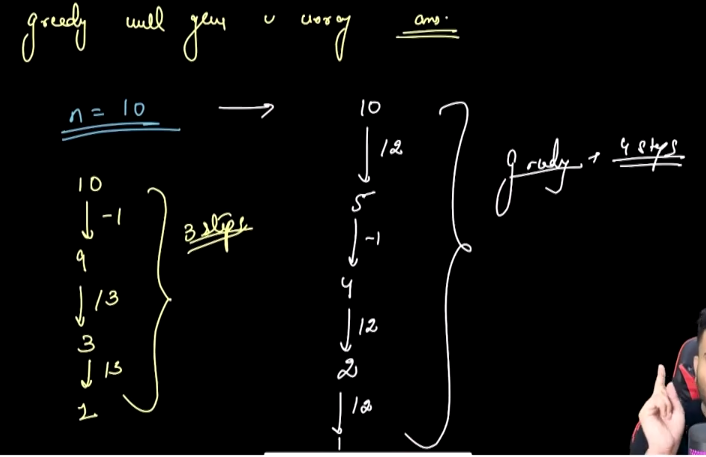 greedy will give u wrong ans.
n = 10 →
10
↓ -1
9
↓ /3
3
↓ /3
1
3 steps
10
↓ /2
5
↓ -1
4
↓ /2
2
↓ /2
1
greedy → 4 steps